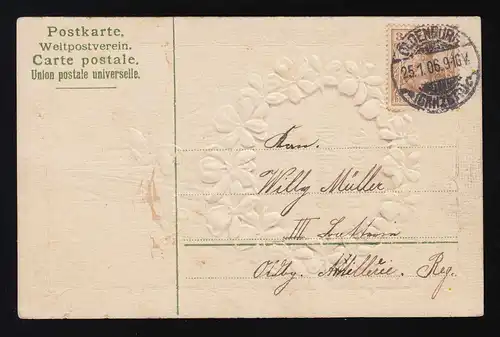 Postkarte,
Weltpostverein.
Carte postale.
Union postale universelle.
OLDENBURG
25.1.06.9-10V.
(GRHZGT.)
3
Kan.
Willy Müller
III Batterie
Oldbg. Artillerie. Reg.